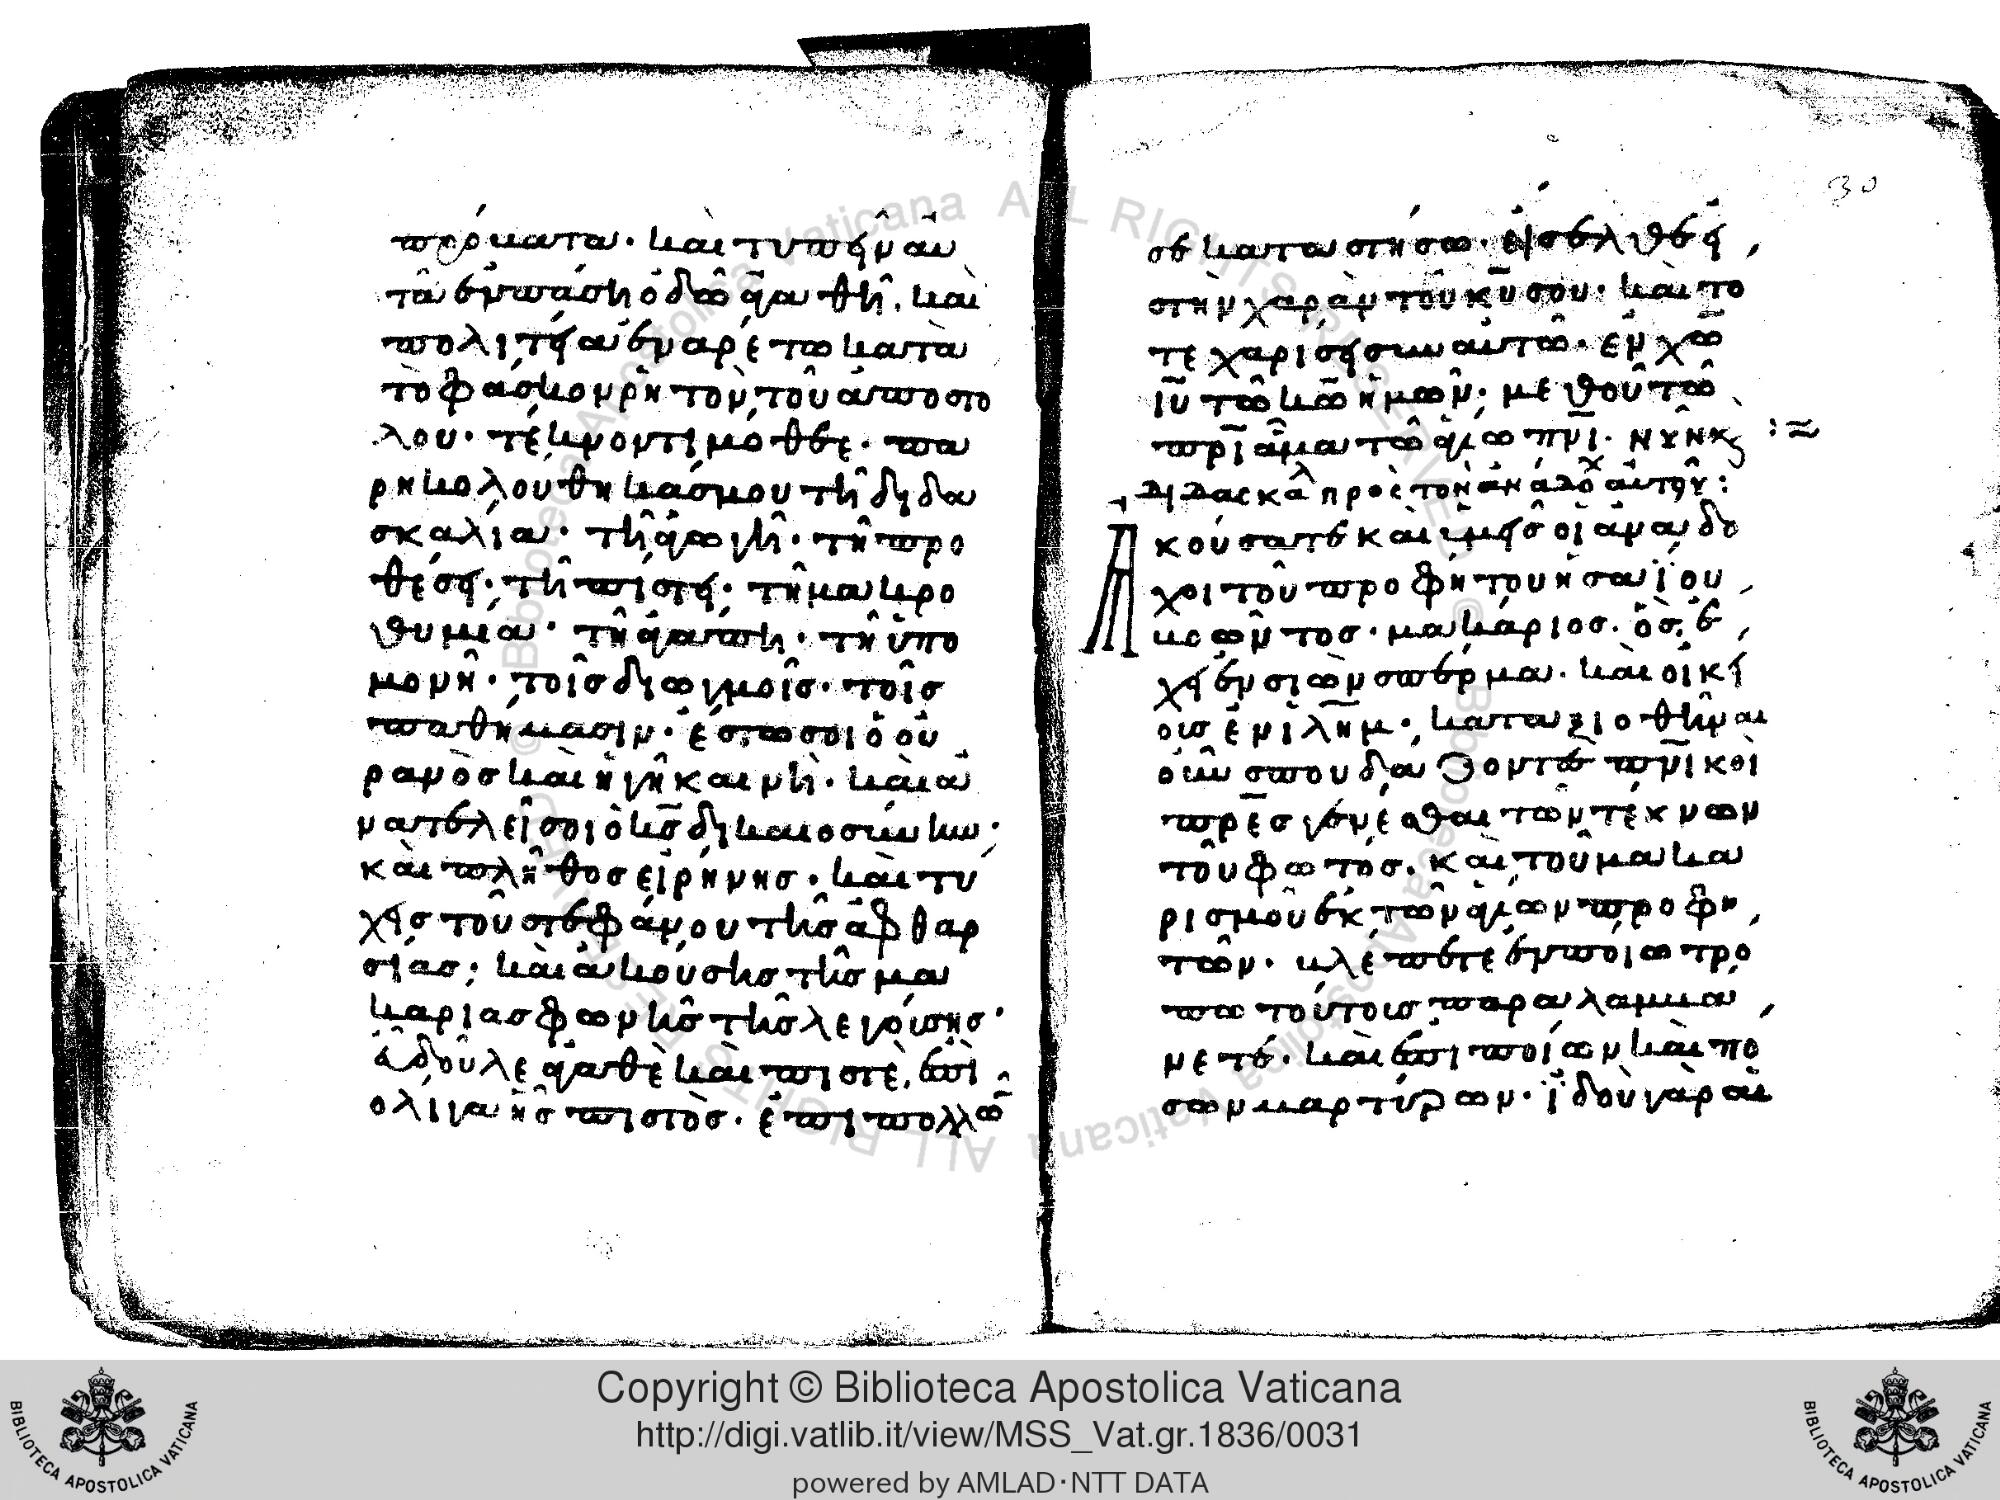 πρόματα. καὶ τυπεῖν αὐ
τὰ ἐν πάσῃ ὁδῶ ἀγαθῆ. καὶ
πολιτεία ἐναρέτω κατὰ
τὸ φάσκον ρητὸν τοῦ ἀποστό
λου. τέκνον τιμόθεε. πα
ρηκολούθηκάς μου τῆ διδα
σκαλία. τῆ ἀγωγῆ. τῆ προ
θέσει. τῆ πίστει. τῆ μακρο
θυμία. τῆ ἀγάπη. τῆ ὑπο
μονῆ. τοῖς διωγμοῖς. τοῖς
παθήμασιν. ἔστω σοι ὁ οὐ
ρανὸς καὶ ἡ γῆ καινὴ. καὶ ἀ
νατελεῖ σοι ὁ κς δικαιοσύνην,
καὶ πλῆθος εἰρήνης. καὶ τύ
χεις τοῦ στεφάνου τῆς ἀφθαρ
σίας, καὶ ἀκούσης τῆς μα
καρίας φωνῆς τῆς λεγούσης.
ἀ δοῦλε ἀγαθὲ καὶ πιστὲ, ἐπὶ
ὀλίγα ἦς πιστὸς. ἐπι πολλῶ
30
σε καταστήσω. εἴσελθε εἰ
ς τὴν χαρὰν τοῦ κυ σου. καὶ τό
τε χαρίσει σὺν αὐτῶ. ἐν χω
ιυ τῶ κω ἡμῶν. μεθ οὗ τῶ
πρι ἅμα τῶ ἁγίω πνι. νῦν κς
διδασκαλ προς τὸν ἀνάδοχ αὐτοῦ:
Ἀκούσατε καὶ ὑμεῖς οἱ ἀνάδο
χοι τοῦ προφήτου ἡσαΐου
κεῶντος. μακάριος. ὃς ἔ
χει ἐν σιὼν σπέρμα. καὶ οἰκεί
ους ἐν ιλημ. καταξιοθῆναι
οὖν σπουδάζοντες πνικοὶ
πρες γενέσθαι τῶν τέκνων
τοῦ φωτός. καὶ τοῦ μακα
ρισμοῦ ἐκ τῶν ἁγίων προφη
τῶν. βλέπετε ἐν ποίω τρό
πω τούτους παραλαμβά
νετε. καὶ ἐπὶ ποίων καὶ πό
σων μαρτύρων. ἰδοὺ γὰρ αὐ
Copyright © Biblioteca Apostolica Vaticana
http://digi.vatlib.it/view/MSS_Vat.gr.1836/0031
powered by AMLAD·NTT DATA
BIBLIOTECA APOSTOLICA VATICANA
BIBLIOTECA APOSTOLICA VATICANA